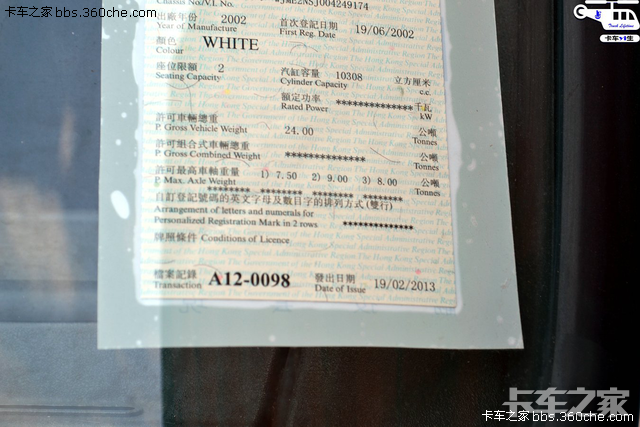 卡车之家 bbs.360che.com
Chassis No./V.I. No.
出廠年份 2002 首次登記日期 19/06/2002
Year of Manufacture First Reg. Date
顏色 WHITE
Colour
座位限額 2 汽缸容量 10308 立方厘米
Seating Capacity Cylinder Capacity c.c.
額定功率 ************** 千瓦
Rated Power kW
許可車輛總重 24.00 公噸
P. Gross Vehicle Weight Tonnes
許可組合式車輛總重 ************** 公噸
P. Gross Combined Weight Tonnes
許可最高車軸重量 1) 7.50 2) 9.00 3) 8.00 公噸
P. Max. Axle Weight ******** ******** ******** ******** Tonnes
自訂登記號碼的英文字母及數目字的排列方式(雙行)
Arrangement of letters and numerals for
Personalized Registration Mark in 2 rows **************
牌照條件 Conditions of Licence
檔案記錄 A12-0098 發出日期 19/02/2013
Transaction Date of Issue
卡车之家
卡车之家 bbs.360che.com